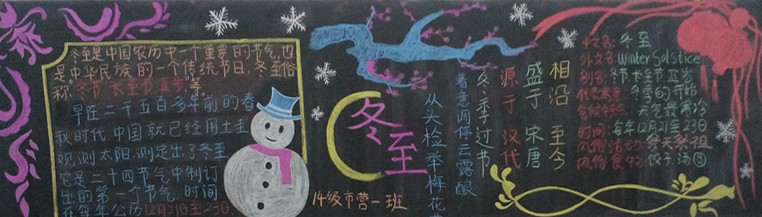 冬至是中国农历中一个重要的节气,也
是中华民族的一个传统节日,冬至俗
称冬节 长至节 亚岁等,
早在二千五百多年前的春
秋时代,中国就已经用土圭
观测太阳,测定出了冬至
它是二十四节气中制订
出的第一个节气,时间
在每年公历12月21日至23日
冬至
14级市营一班
从头检举梅花
著意调停云露酿
冬季过节
源于汉代
盛于宋唐
相沿至今
中文名:冬至
外文名:Winter Solstice
别名:冬节 长至节 亚岁
时间:每年12月21至23日
风俗活动:祭天祭祖
风俗食物:饺子 汤